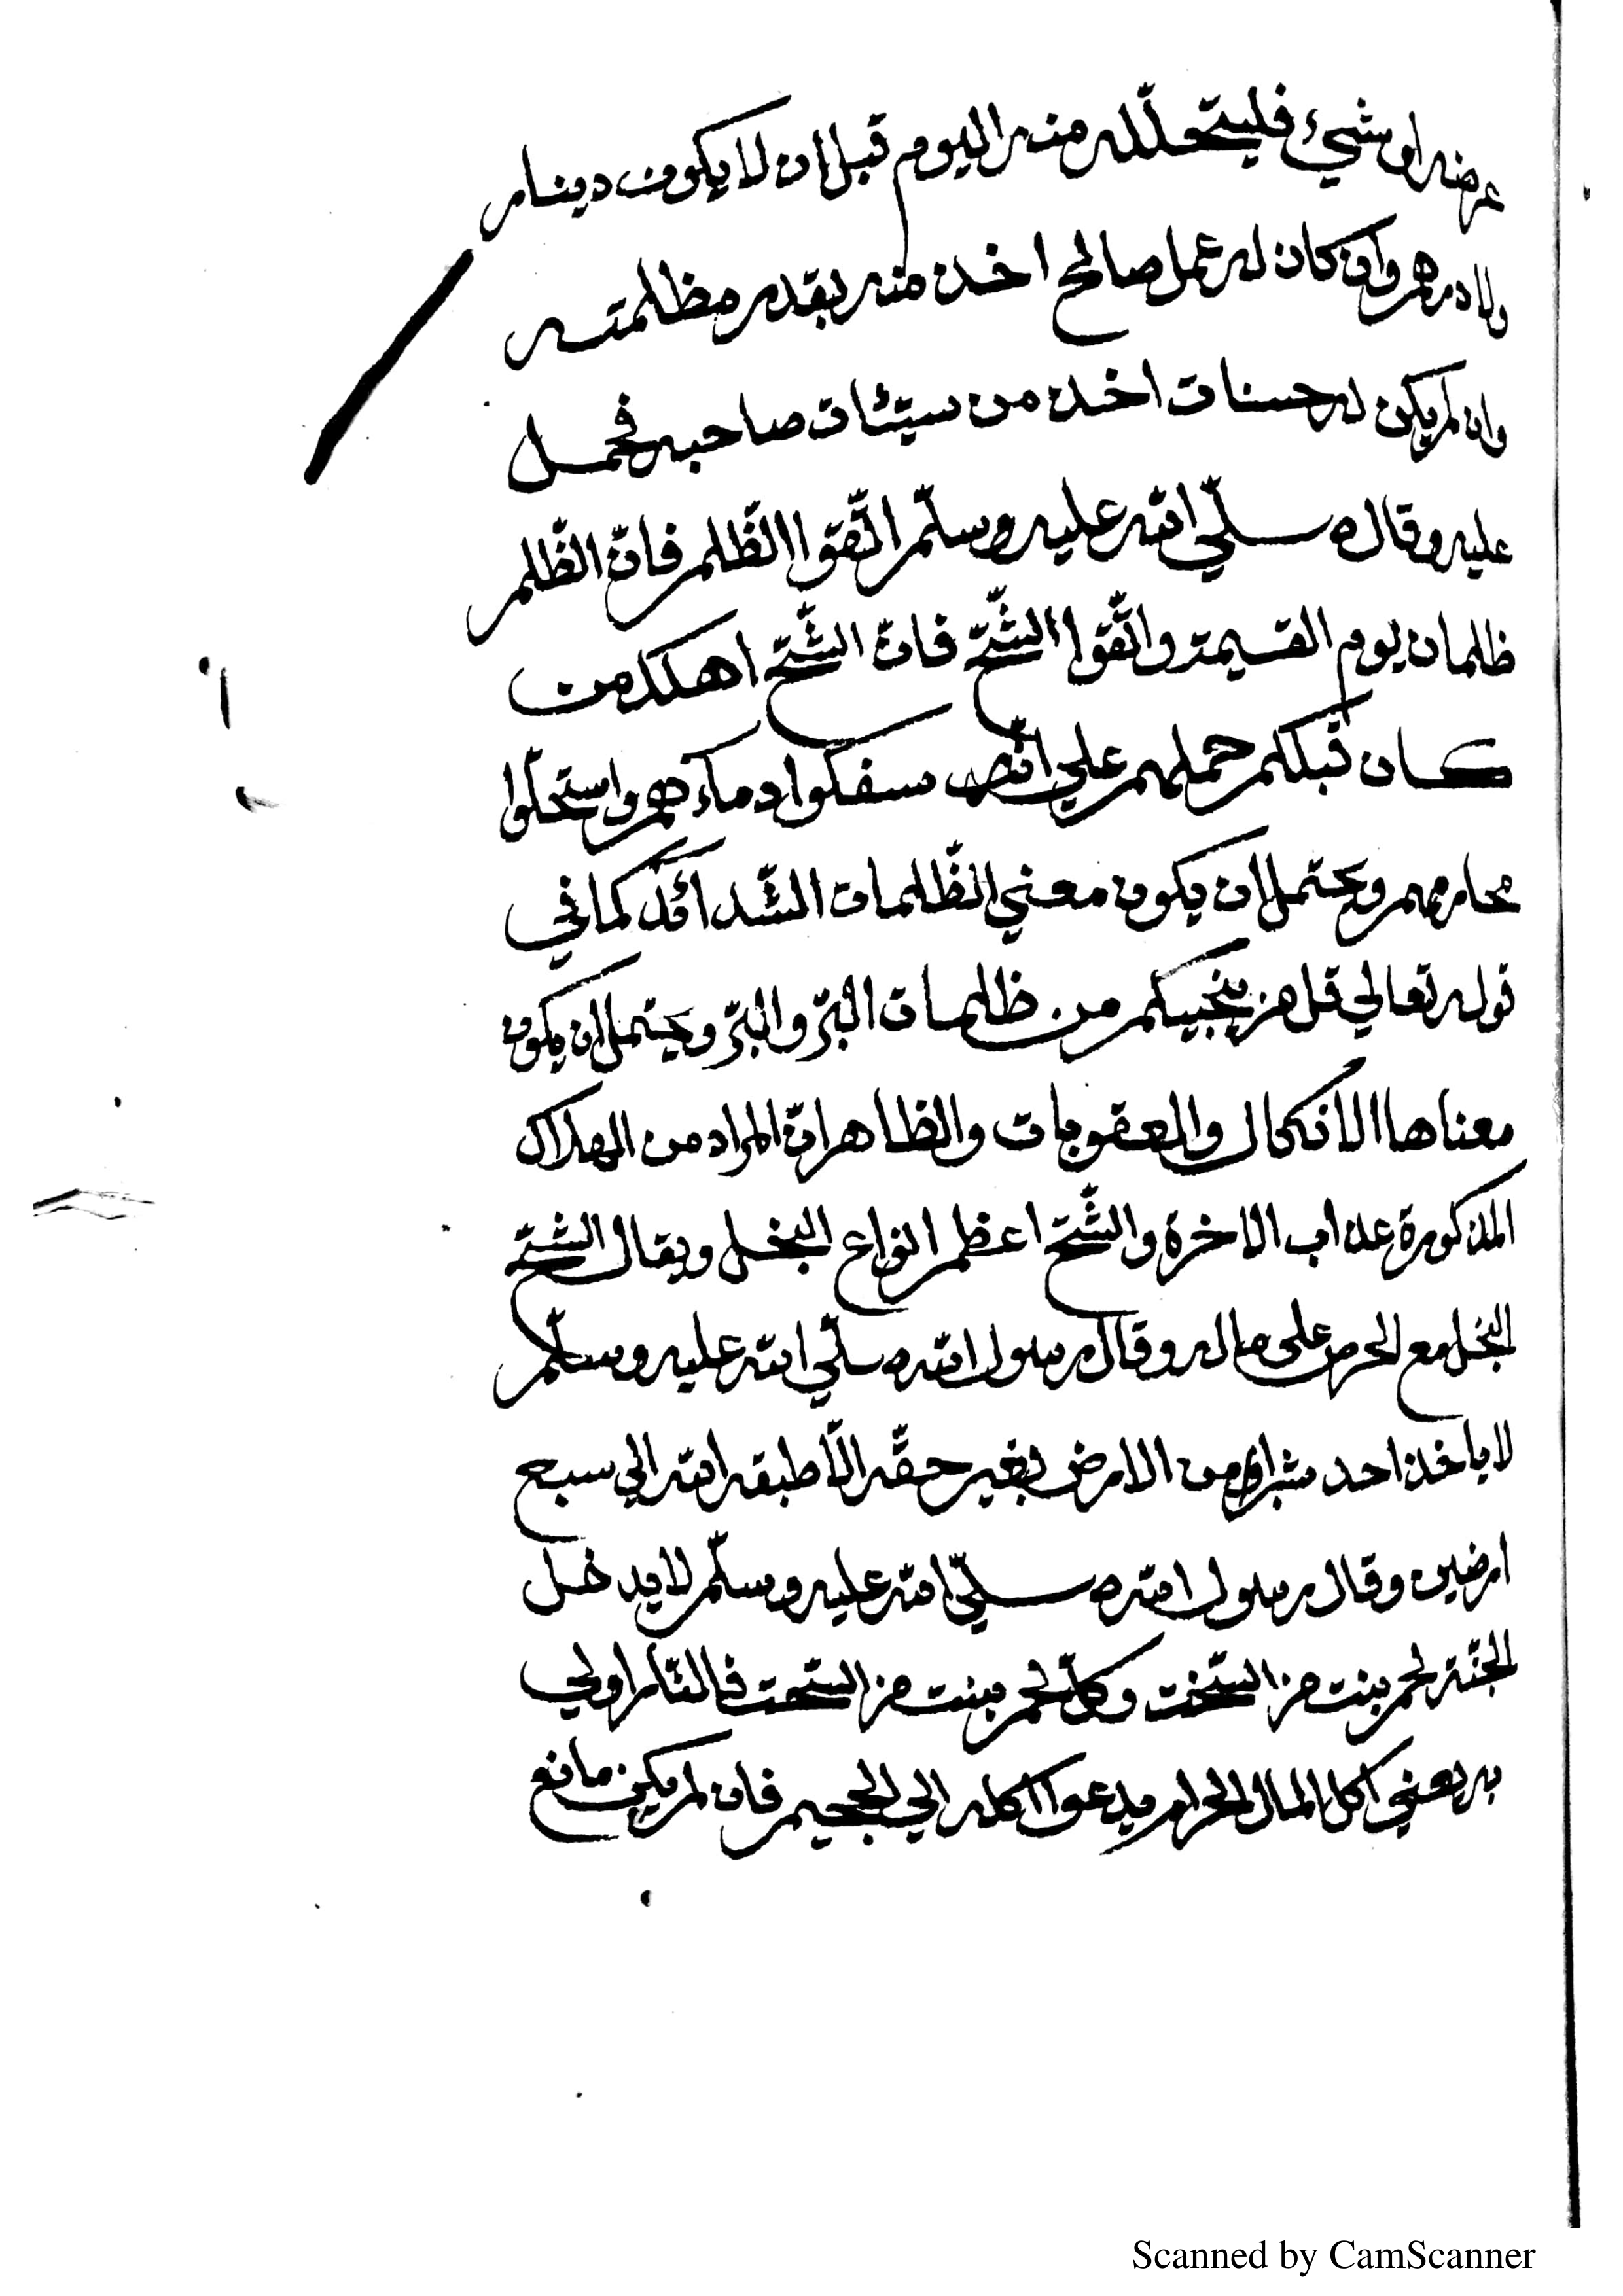 عرضه او شيء فليتحلّله منه اليوم قبل ان لا يكون دينار
ولا درهم وان كان له عمل صالح اخذ منه بقدر مظلمته
وان لم يكن له حسنات اخذ من سيّئات صاحبه فحمل
عليه وقال صلّي الله عليه وسلّم اتّقوا الظّلم فانّ الظّلم
ظلمات يوم القيمة واتّقوا الشّحّ فانّ الشّحّ اهلك من
كان قبلكم حملهم علي ان سفكوا دماءهم واستحلّوا
محارمهم ويحتمل ان يكون معني الظّلمات الشّدائد كما في
قوله تعالي قل من ينجيكم من ظلمات البرّ والبرّ ويحتمل ان يكون
معناها الانكال والعقوبات والظاهر انّ المراد من الهلاك
المذكورة عذاب الاخرة والشّحّ اعظم انواع البخل ويقال الشّحّ
البخل مع الحرص على ماله وقال رسول الله صلّي الله عليه وسلّم
لا ياخذ احد شبرا من الارض بغير حقّه الّا طبقه الله الي سبع
ارضين وقال رسول الله صلّي الله عليه وسلّم لا يدخل
الجنّة لحم ينبت من السّحت وكلّ لحم ينبت من السّحت فالنّار اولي
به يعني اكل المال الحرام يدعوا اكله الي الجحيم فان لم يكن مانع
Scanned by CamScanner